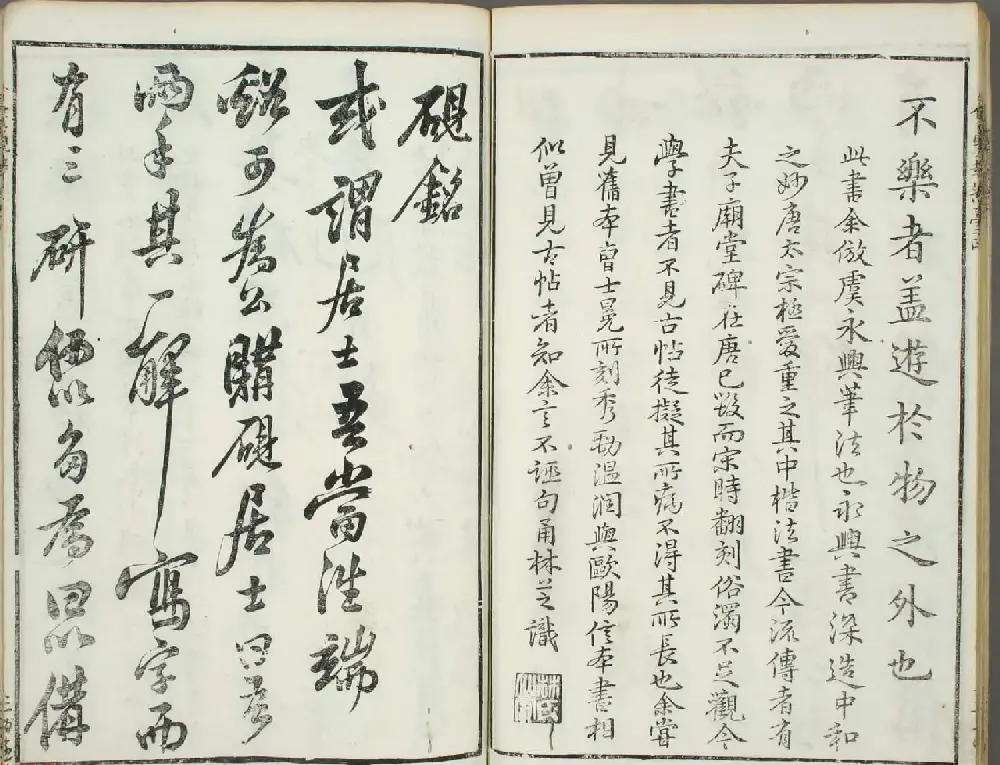 不樂者盖遊於物之外也
此書余倣虞永興筆法也永興書深造中和
之妙唐太宗極愛重之其中楷法書今流傳者有
夫子廟堂碑在唐已毀而宋時翻刻俗濁不足觀今
學書者不見古帖徒擬其所病不得其所長也余嘗
見舊本曾士冕所刻秀勁温潤與歐陽信本書相
似曾見古帖者知余言不誣句甬林芝識
硯銘
或謂居士吾當往端
谿可為公購硯居士曰吾
兩手其一解寫字而
有三研何以多為曰以備